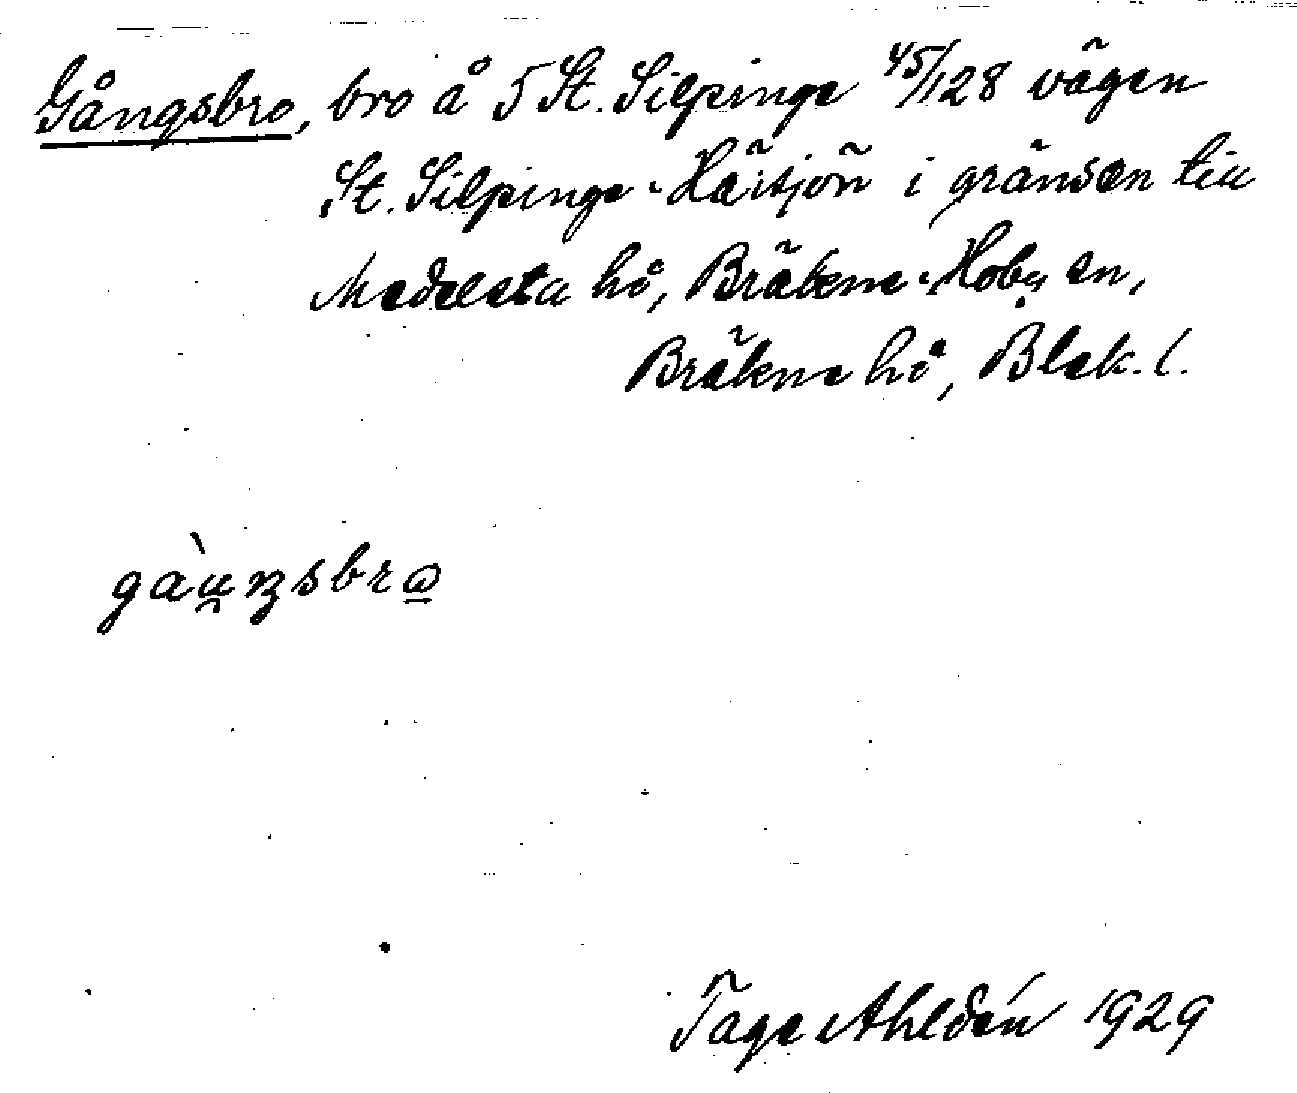 Gångsbro, bro å 5 St. Silpinge 45/128 vägen
St. Silpinge - Härsjön i gränsen till
Medelsta hd, Bräkne-Hoby sn,
Bräkne hd, Blek. l.
gàu̯ŋsbro
Tage Ahldén 1929